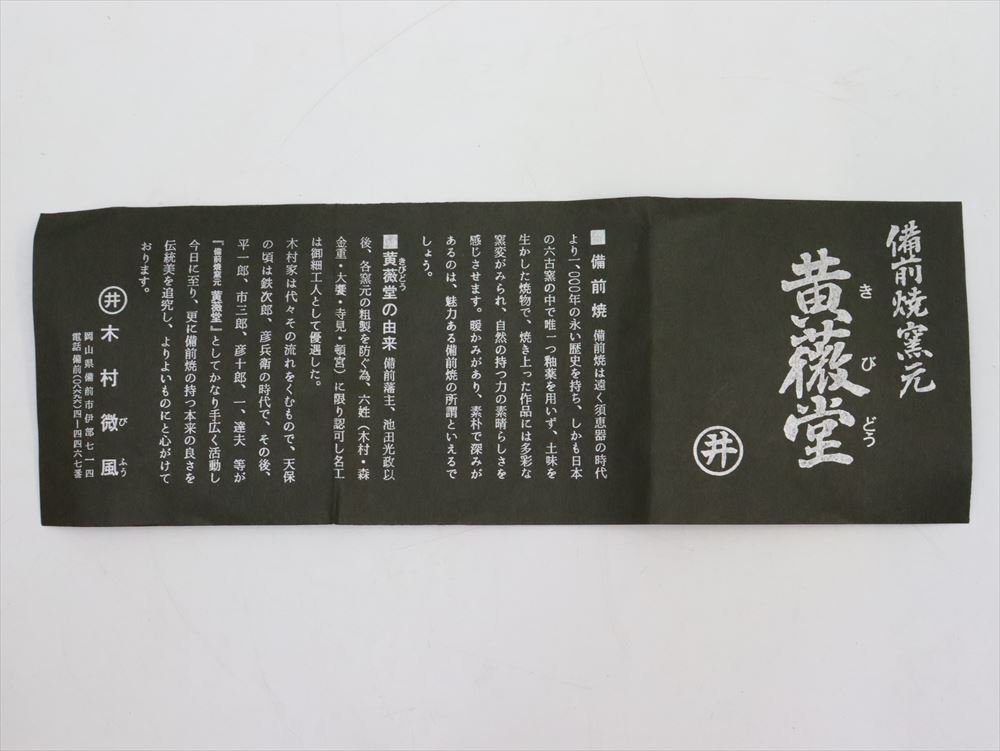 備前焼窯元
黄薇堂
きびどう
井
■備前焼 備前焼は遠く須恵器の時代
より一、〇〇〇年の永い歴史を持ち、しかも日本
の六古窯の中で唯一つ釉薬を用いず、土味を
生かした焼物で、焼き上った作品には多彩な
窯変がみられ、自然の持つ力の素晴らしさを
感じさせます。暖かみがあり、素朴で深みが
あるのは、魅力ある備前焼の所謂といえるで
しょう。
■黄薇堂の由来 備前藩主、池田光政以
きびどう
後、各窯元の粗製を防ぐ為、六姓(木村・森
金重・大饗・寺見・頓宮)に限り認可し名工
は御細工人として優遇した。
木村家は代々その流れをくむもので、天保
の頃は鉄次郎、彦兵衛の時代で、その後、
平一郎、市三郎、彦十郎、一、達夫 等が
『備前焼窯元 黄薇堂』としてかなり手広く活動し
今日に至り、更に備前焼の持つ本来の良さを
伝統美を追究し、よりよいものにと心がけて
おります。
井 木村微風
びふう
岡山県備前市伊部七一四
電話 備前(〇八六九六)四―四四六七番